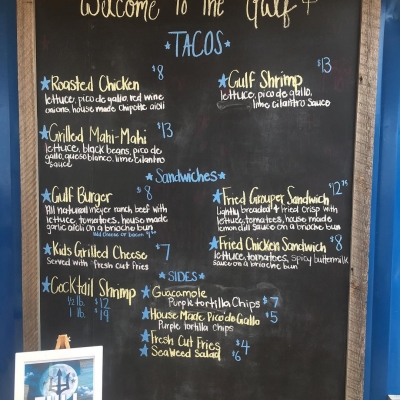 Welcome To The Gulf
TACOS
Roasted Chicken $8
lettuce, pico de gallo, red wine
onions, house made chipotle aioli
Gulf Shrimp $13
lettuce, pico de gallo,
lime cilantro sauce
Grilled Mahi-Mahi $13
lettuce, black beans, pico de
gallo, queso blanco, lime cilantro
sauce
Sandwiches
Gulf Burger $8
All natural meyer ranch beef with
lettuce, tomatoes, house made
garlic aioli on a brioche bun
Add cheese or bacon
Fried Grouper Sandwich $12
Lightly breaded & fried crisp with
lettuce, tomatoes, house made
lemon dill sauce on a brioche bun
Kids Grilled Cheese $7
Served with fresh cut fries
Fried Chicken Sandwich $8
lettuce, tomatoes, spicy buttermilk
sauce on a brioche bun
SIDES
Cocktail Shrimp
1/2 lb. $12
1 lb. $19
Guacamole
Purple tortilla Chips $7
House Made Pico de Gallo $5
Purple tortilla chips
Fresh Cut Fries $4
Seaweed Salad $6